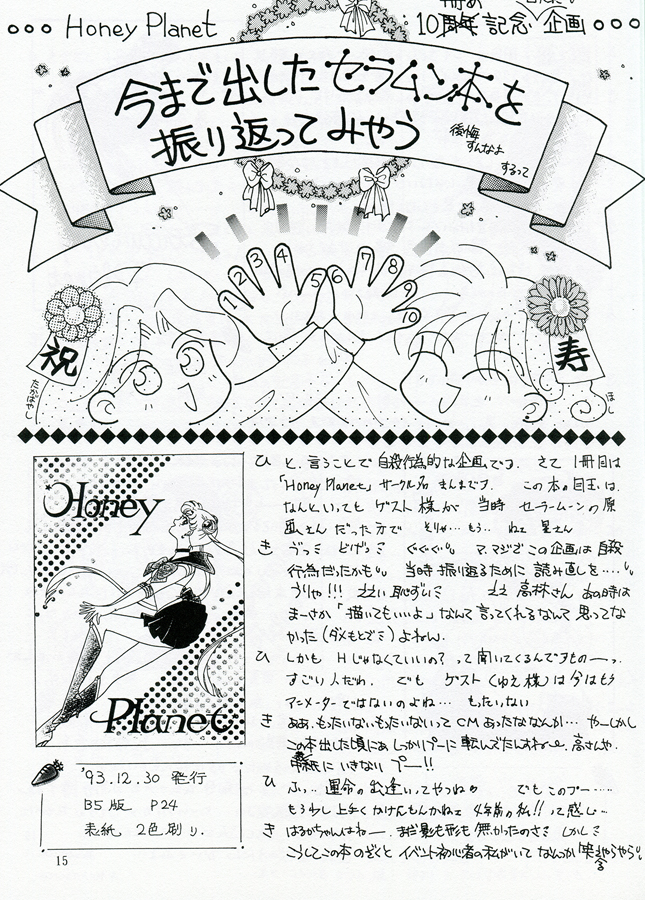 Honey Planet
10周年記念 企画
今まで出したセラムン本を
振り返ってみやう
後悔
すんなよ
するって
1 2 3 4 5 6 7 8 9 10
祝
寿
たかばやし
ほし
Honey
Planet
'93.12.30 発行
B5版 P24
表紙 2色刷り.
15
ひ と、言うことで自殺行為的な企画です. さて 1冊目は
「Honey Planet」サークル名 まんまです. この本の目玉は、
なんといっても ゲスト様が 当時 セーラームーンの原
画さん だった方で そりゃ… もう‥ ねェ 星さん
き うっ どげっ ぐぐぐ マ、マジでこの企画は自殺
行為だったかも 当時 振り返るために 読み直しを‥‥
うりゃ!!! ええい 恥ずい ええ 高林さん あの時は
まーさか「描いてもいいよ」なんて言ってくれるなんて 思ってな
かった(ダメもとで)よねん.
ひ しかも Hじゃなくていいの? って聞いてくるんですものーっ.
すごい人だわ. でも ゲスト(ゆえ様)は今はもう
アニメーターではないのよね… もったいない
き ああ、もったいない、もったいないって CMあったな なんか… やーしかし
この本出した頃にぁ しっかりプーに転んでたしねぇ 高さんや.
表紙にいきなり プー!!
ひ ふっ.. 運命の出逢いってやつね でもこのプー‥‥
もう少し上手くかけんもんかねェ 4年前の私!! って感じ…
き はるかちゃんはねー. まだ影も形も無かったのさ しかし
こうしてこの本のぞくと イベント初心者の私がいて なんか 笑えるやら